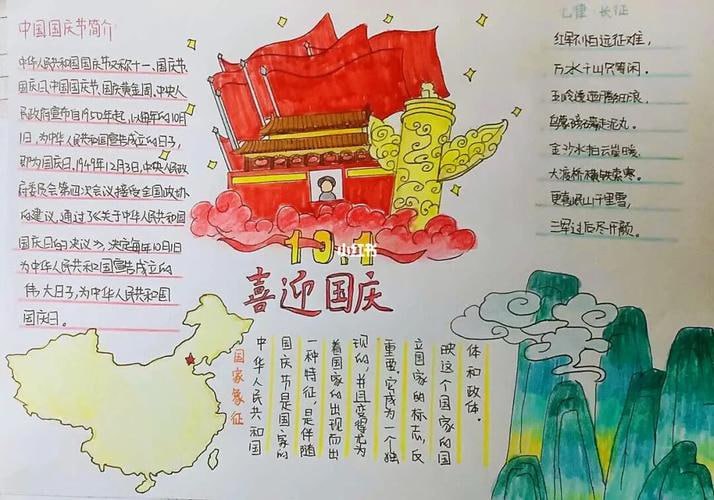 中国国庆节简介
中华人民共和国国庆节又称十一、国庆节、
国庆日、中国国庆节、国庆黄金周。中央人
民政府宣布自1950年起,以每年的10月
1日,为中华人民共和国宣告成立的日子,
即为国庆日。1949年12月3日,中央人民政
府委员会第四次会议接受全国政协
的建议,通过了《关于中华人民共和国
国庆日的决议》,决定每年10月1日
为中华人民共和国宣告成立的
伟大日子,为中华人民共和国
国庆日。
10.1
小红书
喜迎国庆
七律·长征
红军不怕远征难,
万水千山只等闲。
五岭逶迤腾细浪,
乌蒙磅礴走泥丸。
金沙水拍云崖暖,
大渡桥横铁索寒。
更喜岷山千里雪,
三军过后尽开颜。
国家象征
中华人民共和国
国庆节是国家的
一种特征,是伴随
着国家的出现而出
现的,并且变得尤为
重要。它成为一个独
立国家的标志,反
映这个国家的国
体和政体。